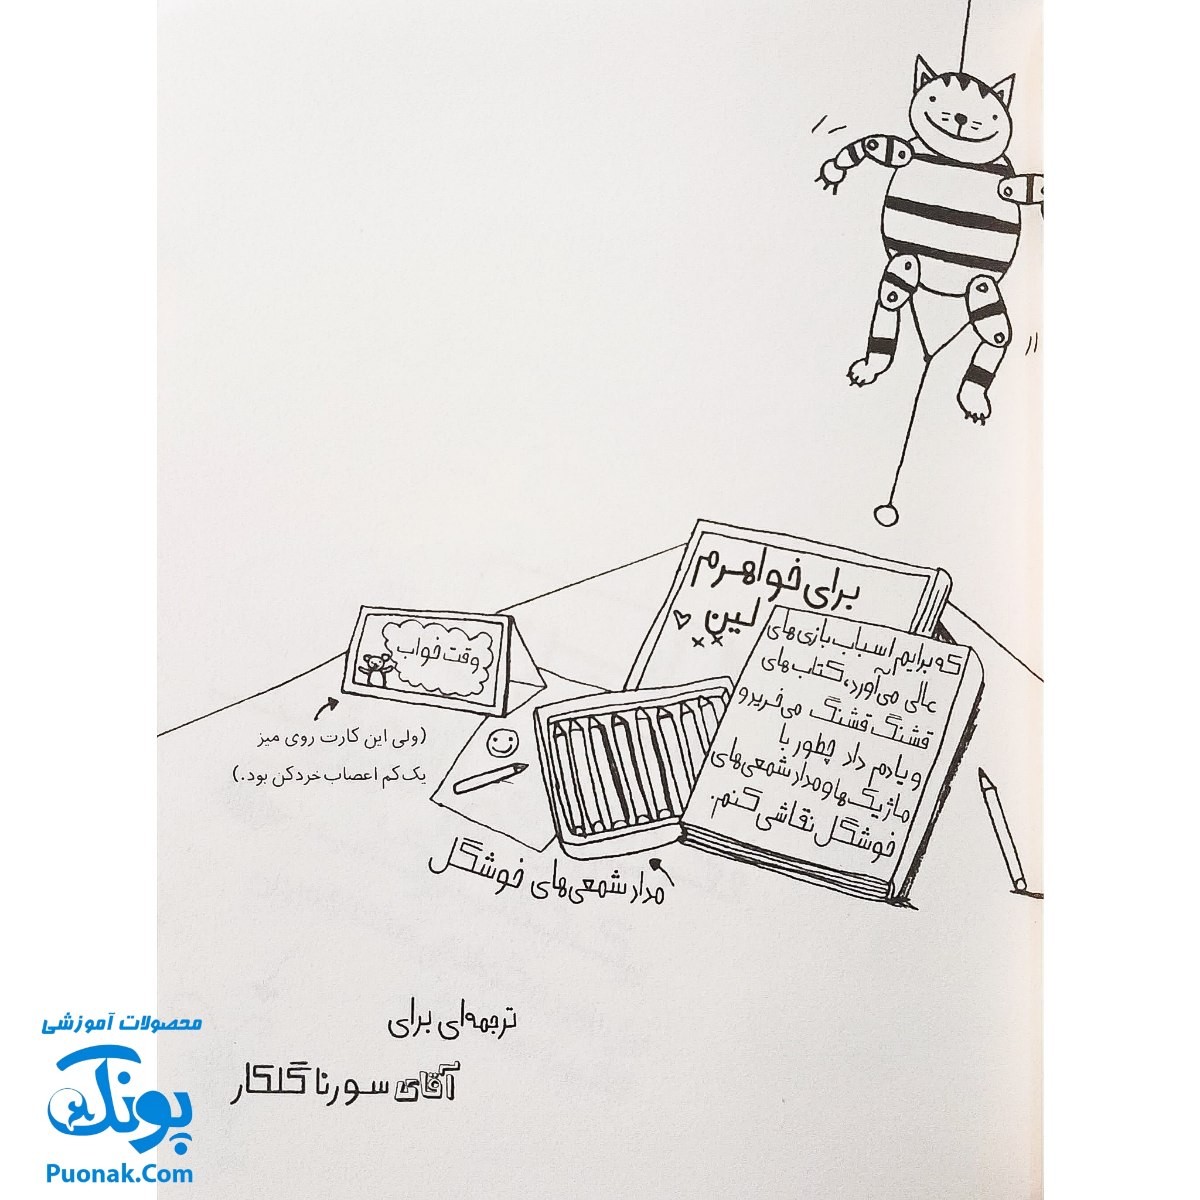 برای خواهرم
لین
که برایم اسباب بازی‌های
عالی می‌آورد، کتاب‌های
قشنگ قشنگ می‌خرید و
و یادم داد چطور با
ماژیک‌ها و مداد شمعی‌های
خوشگل نقاشی کنم.
وقت خواب
(ولی این کارت روی میز
یک کم اعصاب خردکن بود.)
مداد شمعی‌های خوشگل
ترجمه‌ای برای
آقای سورنا گلکار
محصولات آموزشی
پونک
Puonak.Com